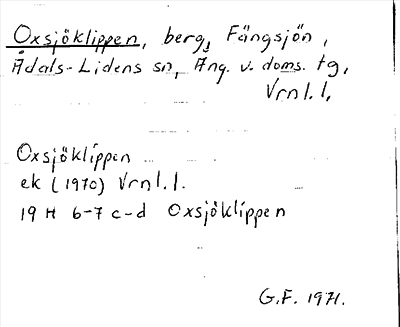 Oxsjöklippen, berg, Fängsjön,
Ådals-Lidens sn, Ång. v. doms. tg,
Vrnl.l.
Oxsjöklippen
ek (1970) Vrnl.l.
19 H 6-7 c-d Oxsjöklippen
G.F. 1971.